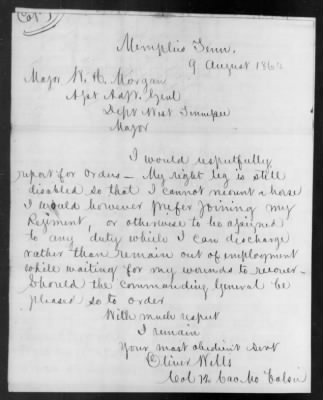 Memphis Tenn.
9 August 186
Major W. H. Morgan
Asst Adjt. Genl
Dept West Tennessee
Major
I would respectfully
report for orders — My right leg is still
disabled so that I cannot mount a horse
I would however prefer joining my
Regiment, or otherwise to be assigned
to any duty which I can discharge
rather than remain out of employment
while waiting for my wounds to recover —
Should the commanding General be
pleased so to order
With much respect
I remain
Your most obedient Servt
Oliver Wells
Col 12 Cav. Mo Vols